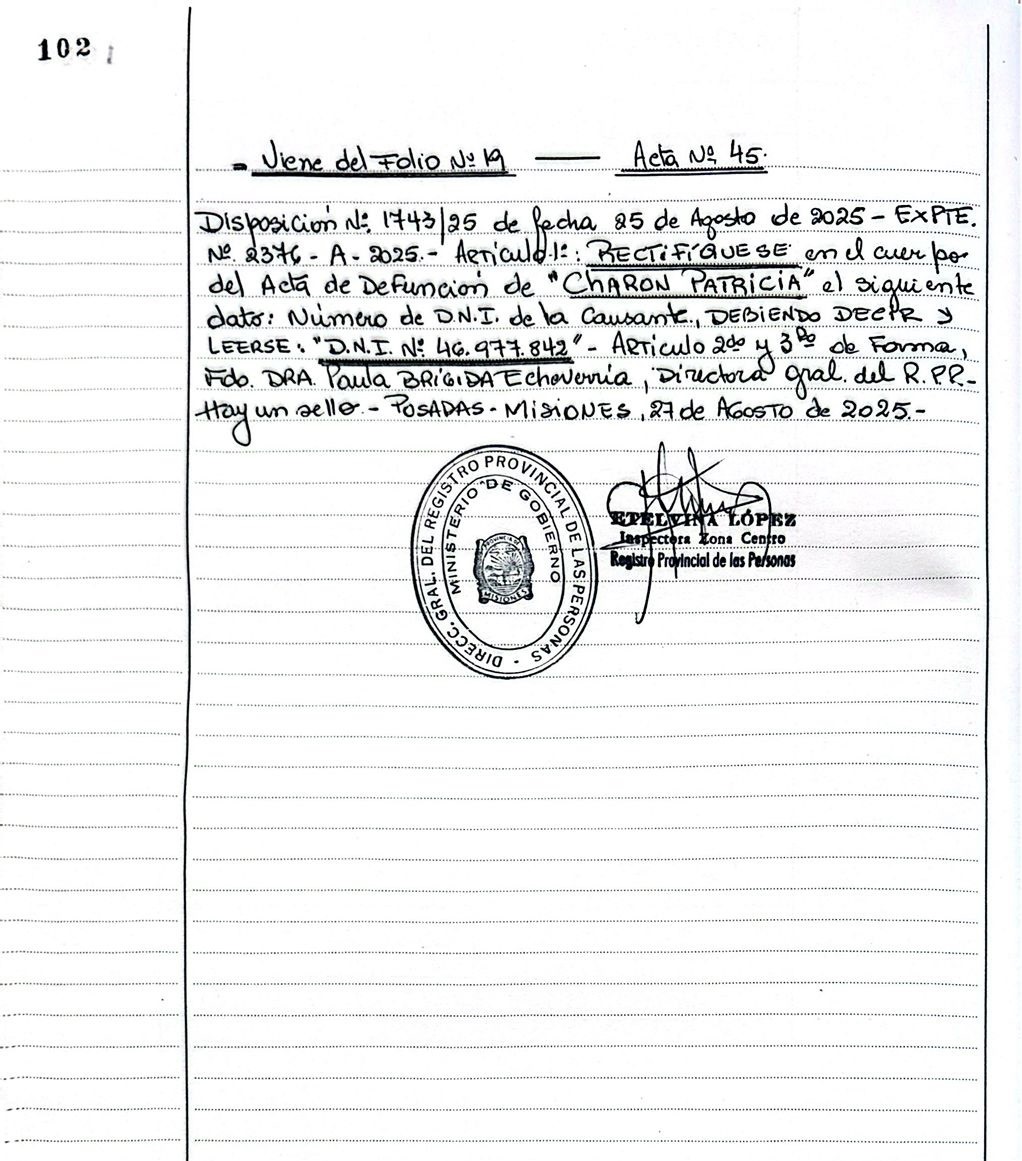 102
- Viene del Folio Nº 19 —— Acta Nº 45.
Disposición Nº 1743/25 de fecha 25 de Agosto de 2025 - EXPTE.
Nº 2376 - A - 2025.- Artículo 1º: RECTIFÍQUESE en el cuerpo
del Acta de Defunción de "CHARON PATRICIA" el siguiente
dato: Número de D.N.I. de la Causante, DEBIENDO DECIR y
LEERSE: "D.N.I. Nº 46.977.842" - Artículo 2do y 3ro de Forma,
Fdo. DRA. Paula BRÍGIDA Echeverría, Directora Gral. del R.P.P.-
Hay un sello.- POSADAS - MISIONES, 27 de AGOSTO de 2025.-
DIRECC. GRAL. DEL REGISTRO PROVINCIAL DE LAS PERSONAS -
MINISTERIO DE GOBIERNO
PROVINCIA DE
MISIONES
ETELVINA LÓPEZ
Inspectora Zona Centro
Registro Provincial de las Personas